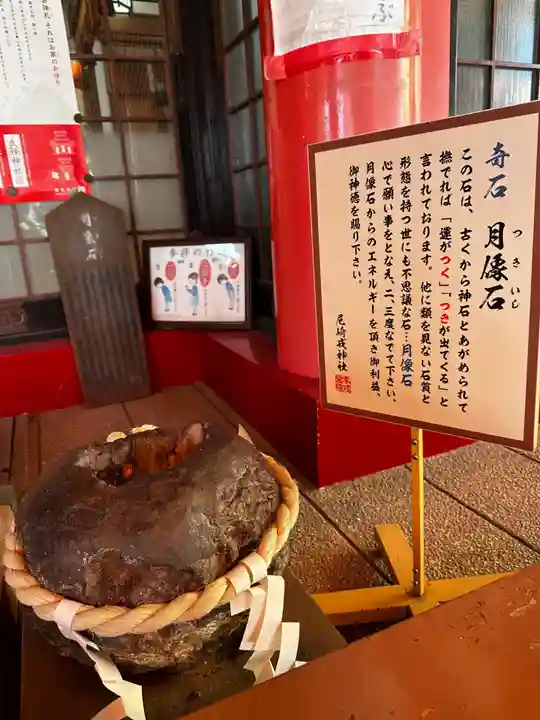 奇石 月像石
つきいし
この石は、古くから神石とあがめられて
撫でれば「運がつく」「つきが出てくる」と
言われております。他に類を見ない石質と
形態を持つ世にも不思議な石…月像石
心で願い事をとなえ、二、三度なでて下さい、
月像石からのエネルギーを頂き御利益、
御神徳を賜り下さい。
尼崎戎神社
ぶ
それはお家のお守り
月像石